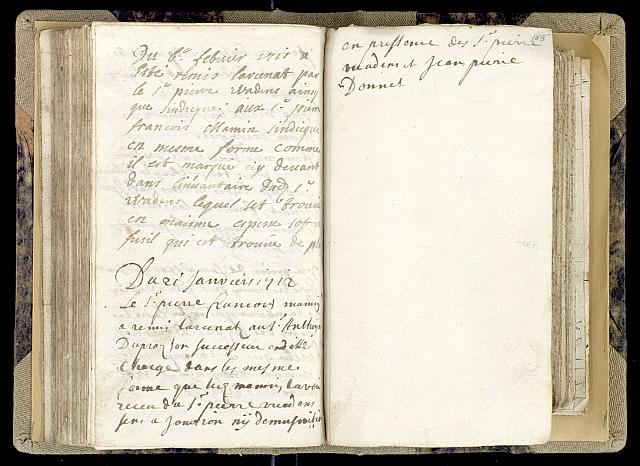 Du 6e febvier 1711 a
esté remis larcenat par
le Sr pierre wadens ainsy
que sindicque; aux Sr
francois Mamin sindicque
en mesme forme comme
il est marqué cy devant
dans linvantaire dud Sr
wadens lequel set trouvé
en
fusil qui est trouvée de plu
Du 21 Janvier 1712
Le Sr pierre francois mamin
a remis larcenat au Sr Anthoyn
Dupraz son successeur en dite
charge dans les mesme
forme que luy mamin lavoit
receu du Sr pierre wadens
sens a Joustion ny demin
en pressence des Sr pierre
wadens et Jean pierre
Donnet